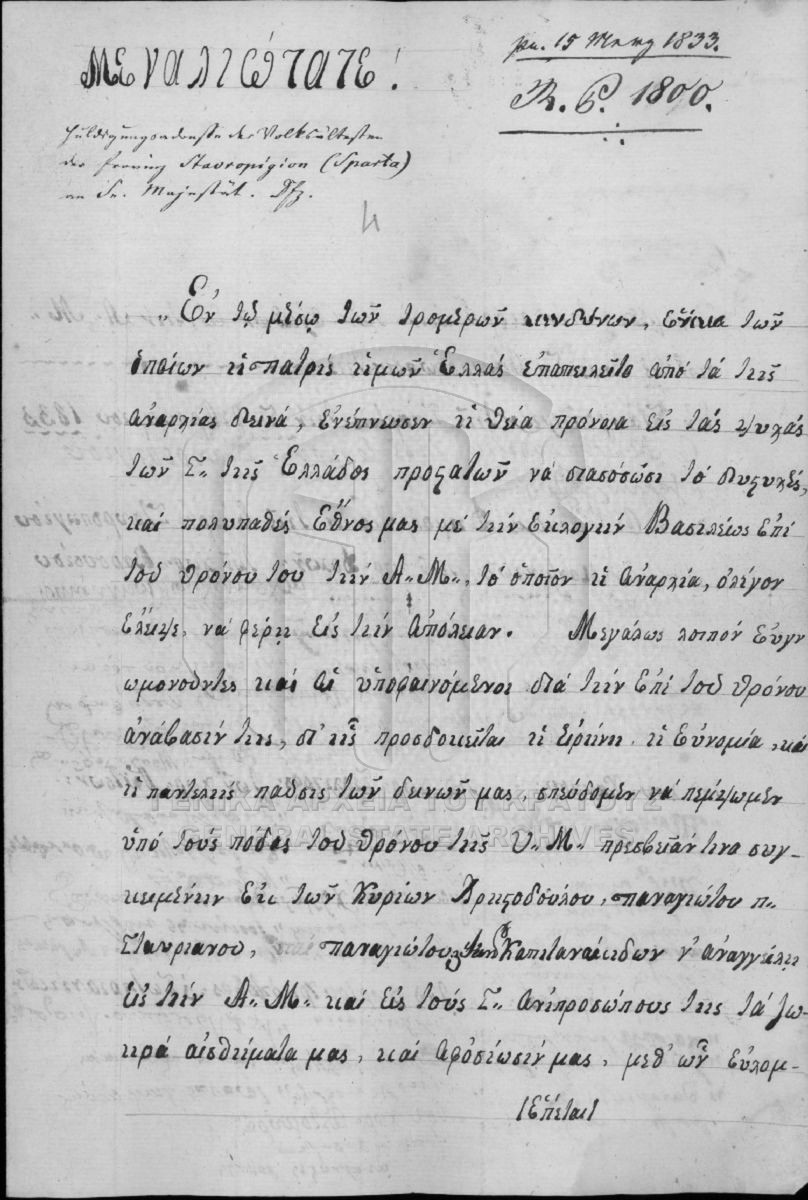 Μεγαλειώτατε!
pr. 15 März 1833.
R. P. 1800.
Huldigungsadresse der Volksältesten
der Provinz Stavropigion (Sparta)
an Se. Majestät.
4
„Εν τῷ μέσῳ τῶν τρομερῶν κινδύνων, ἕνεκα τῶν
ὁποίων ἡ πατρίς ἡμῶν Ἑλλάς ἐπαπειλεῖτο ἀπό τά τῆς
ἀναρχίας δεινά, ἐνέπνευσεν ἡ θεία πρόνοια εἰς τάς ψυχάς
τῶν Σ.. τῆς Ἑλλάδος προστατῶν νά διασώσωσι τό δυστυχές,
καί πολυπαθές Ἔθνος μας μέ τήν ἐκλογήν Βασιλέως ἐπί
τοῦ θρόνου του τήν Α.. Μ.., τό ὁποῖον ἡ ἀναρχία, ὀλίγον
ἔλειψε, νά φέρῃ εἰς τήν ἀπόλειαν. Μεγάλως λοιπόν εὐγν
ωμονοῦντες καί οἱ ὑποφαινόμενοι διά τήν ἐπί τοῦ θρόνου
ἀνάβασίν της, δι' ἧς προσδοκεῖται ἡ εἰρήνη, ἡ εὐνομία, καί
ἡ παντελής παῦσις τῶν δεινῶν μας, σπεύδομεν νά πέμψωμεν
ὑπό τούς πόδας τοῦ θρόνου τῆς Υ.. Μ.. πρεσβείαν τινα συγ-
κειμένην ἐκ τῶν Κυρίων Χριστοδούλου, παναγιώτου π..
Σταυριανου, παναγιώτου Καπιτανακιδων ν' ἀναγγείλῃ
εἰς τήν Α.. Μ.. καί εἰς τούς Σ.. ἀντιπροσώπους της τά ζω-
ηρά αἰσθήματα μας, καί ἀφοσίωσίν μας, μεθ' ὧν εὐχομ-
/ἕπεται/
ΓΕΝΙΚΑ ΑΡΧΕΙΑ ΤΟΥ ΚΡΑΤΟΥΣ
GENERAL STATE ARCHIVES